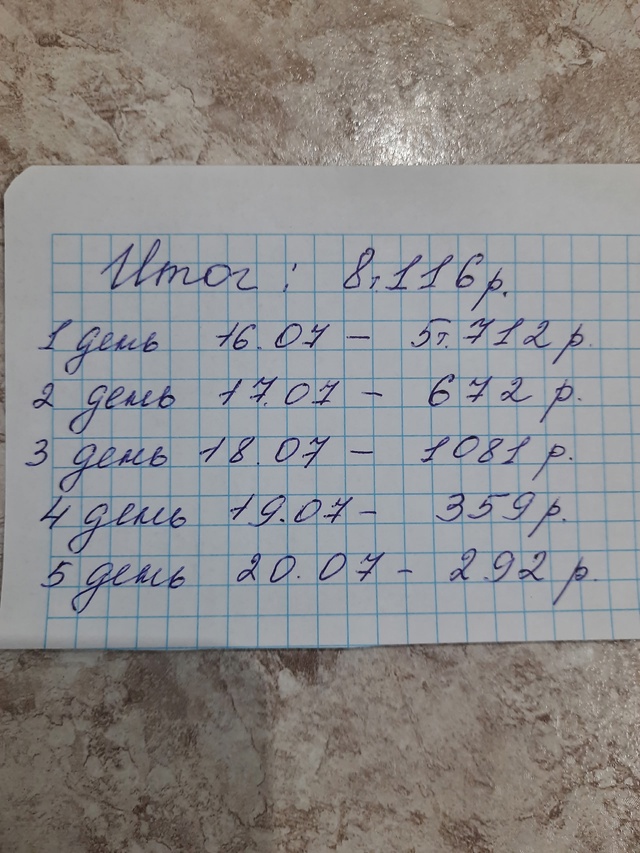 Итог: 8т.116р.
1 день 16.07 – 5т.712р.
2 день 17.07 – 672р.
3 день 18.07 – 1081р.
4 день 19.07 – 359р.
5 день 20.07 – 292р.